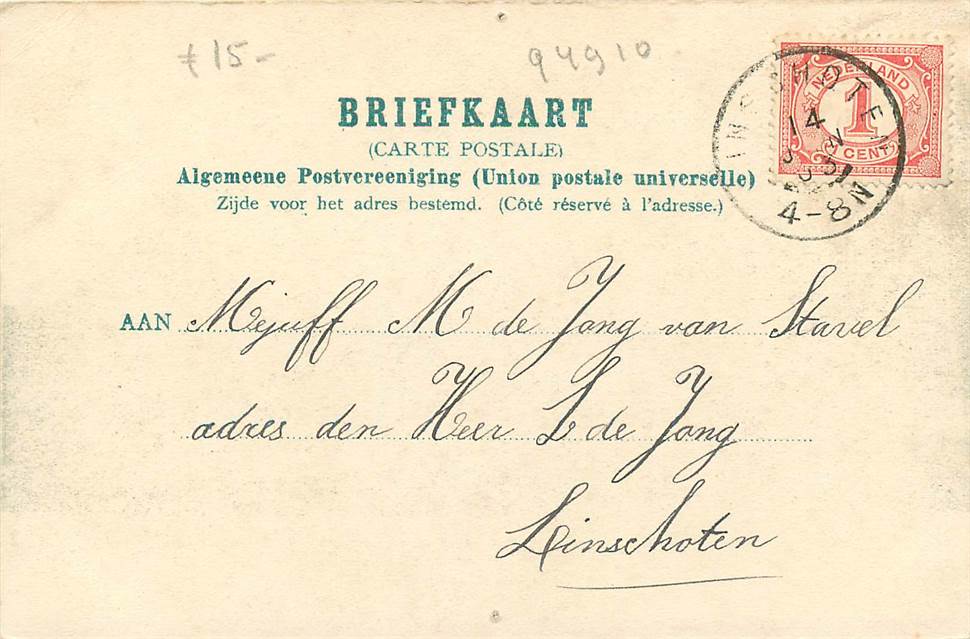 £ 15-
94910
BRIEFKAART
(CARTE POSTALE)
Algemeene Postvereeniging (Union postale universelle)
Zijde voor het adres bestemd. (Côté réservé à l'adresse.)
NEDERLAND
1
CENT
14
4-8 N
AAN Mejuff M de Jong van Stavel
adres den Heer L de Jong
Linschoten